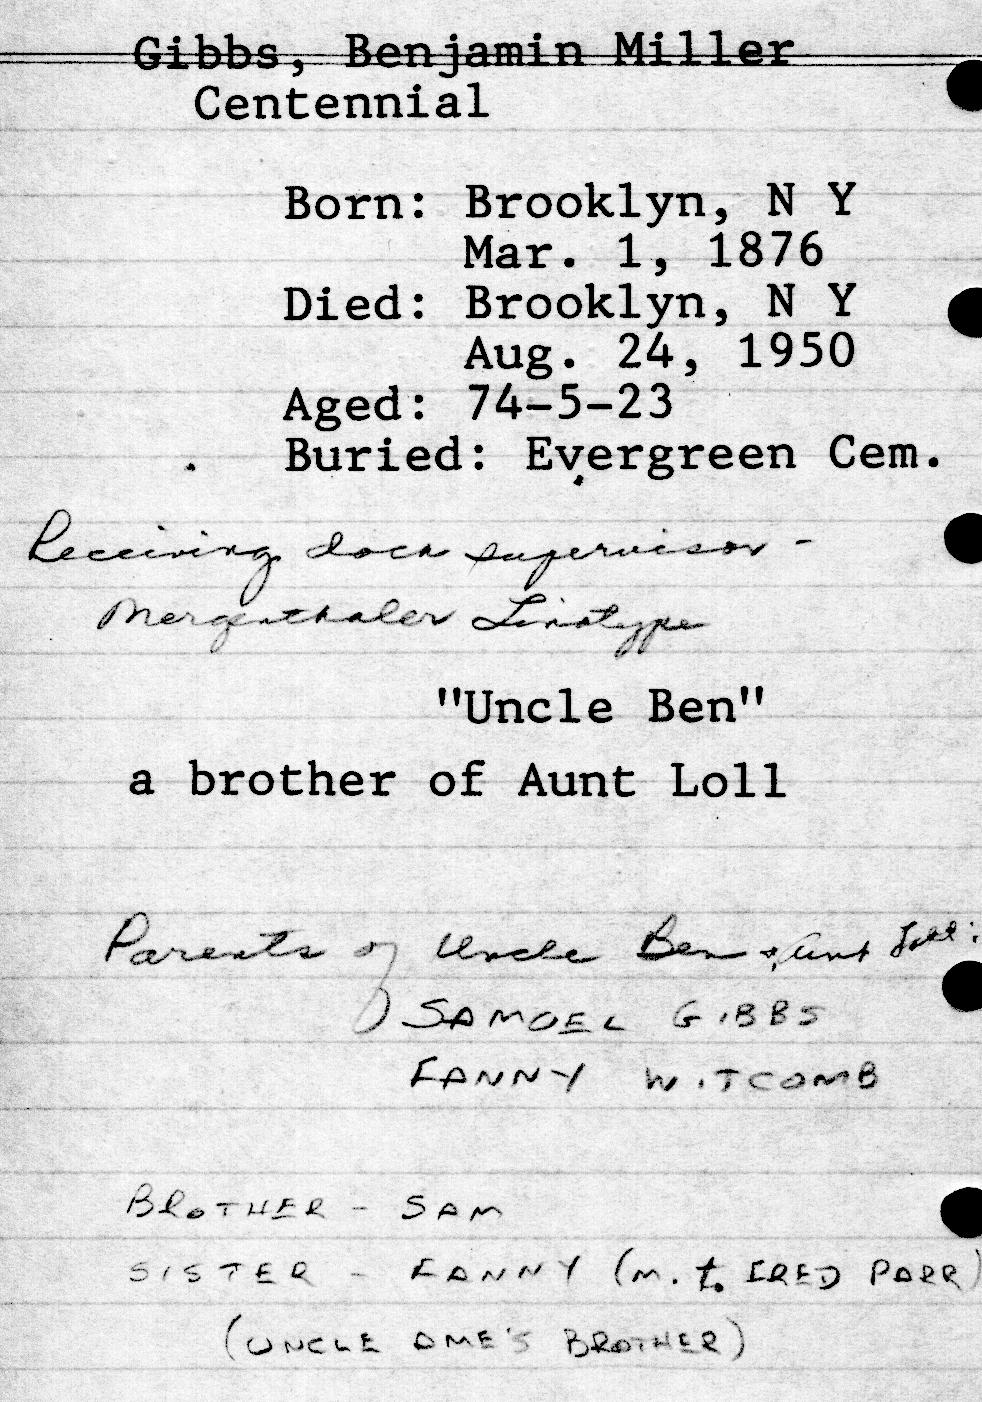 Gibbs, Benjamin Miller
Centennial
Born: Brooklyn, N Y
Mar. 1, 1876
Died: Brooklyn, N Y
Aug. 24, 1950
Aged: 74-5-23
Buried: Evergreen Cem.
Receiving dock supervisor -
Mergenthaler Linotype
"Uncle Ben"
a brother of Aunt Loll
Parents of Uncle Ben & Aunt Loll:
SAMUEL GIBBS
FANNY WITCOMB
BROTHER - SAM
SISTER - FANNY (m. t. FRED PARR)
(UNCLE AME'S BROTHER)